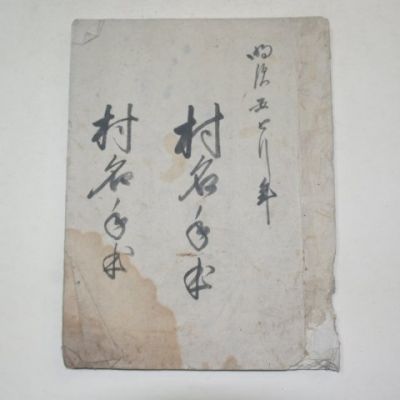 明治五年
村名手本
村名手本